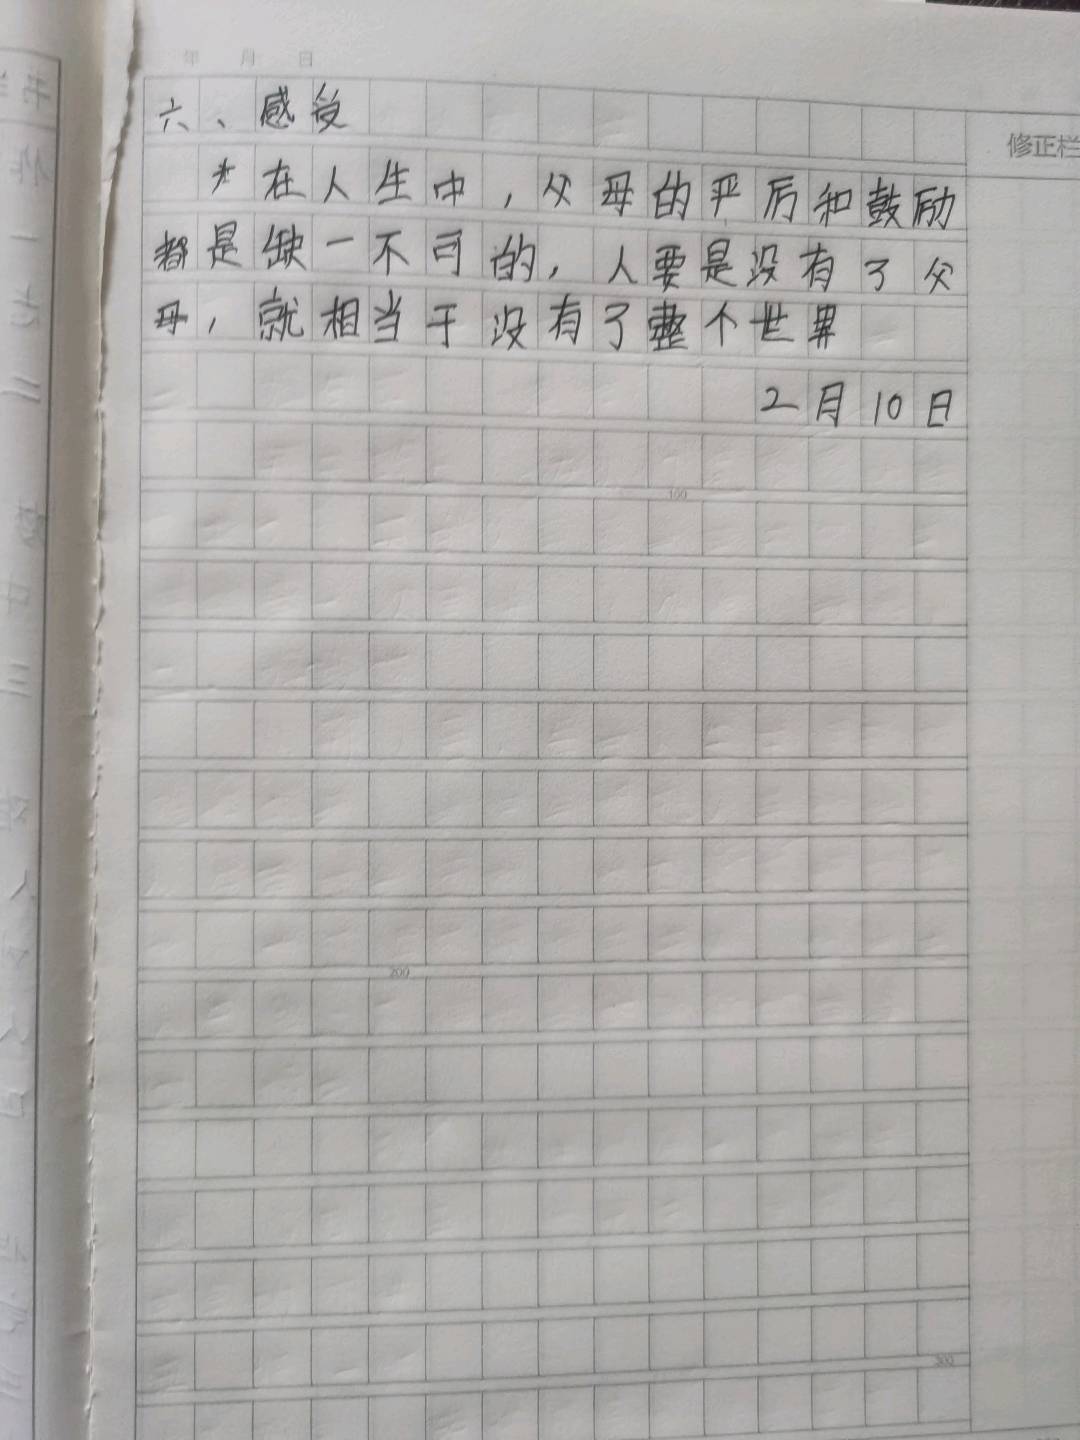 年 月 日
修正栏
六、感受
在人生中，父母的严厉和鼓励
都是缺一不可的，人要是没有了父
母，就相当于没有了整个世界
2月10日
100
200
300